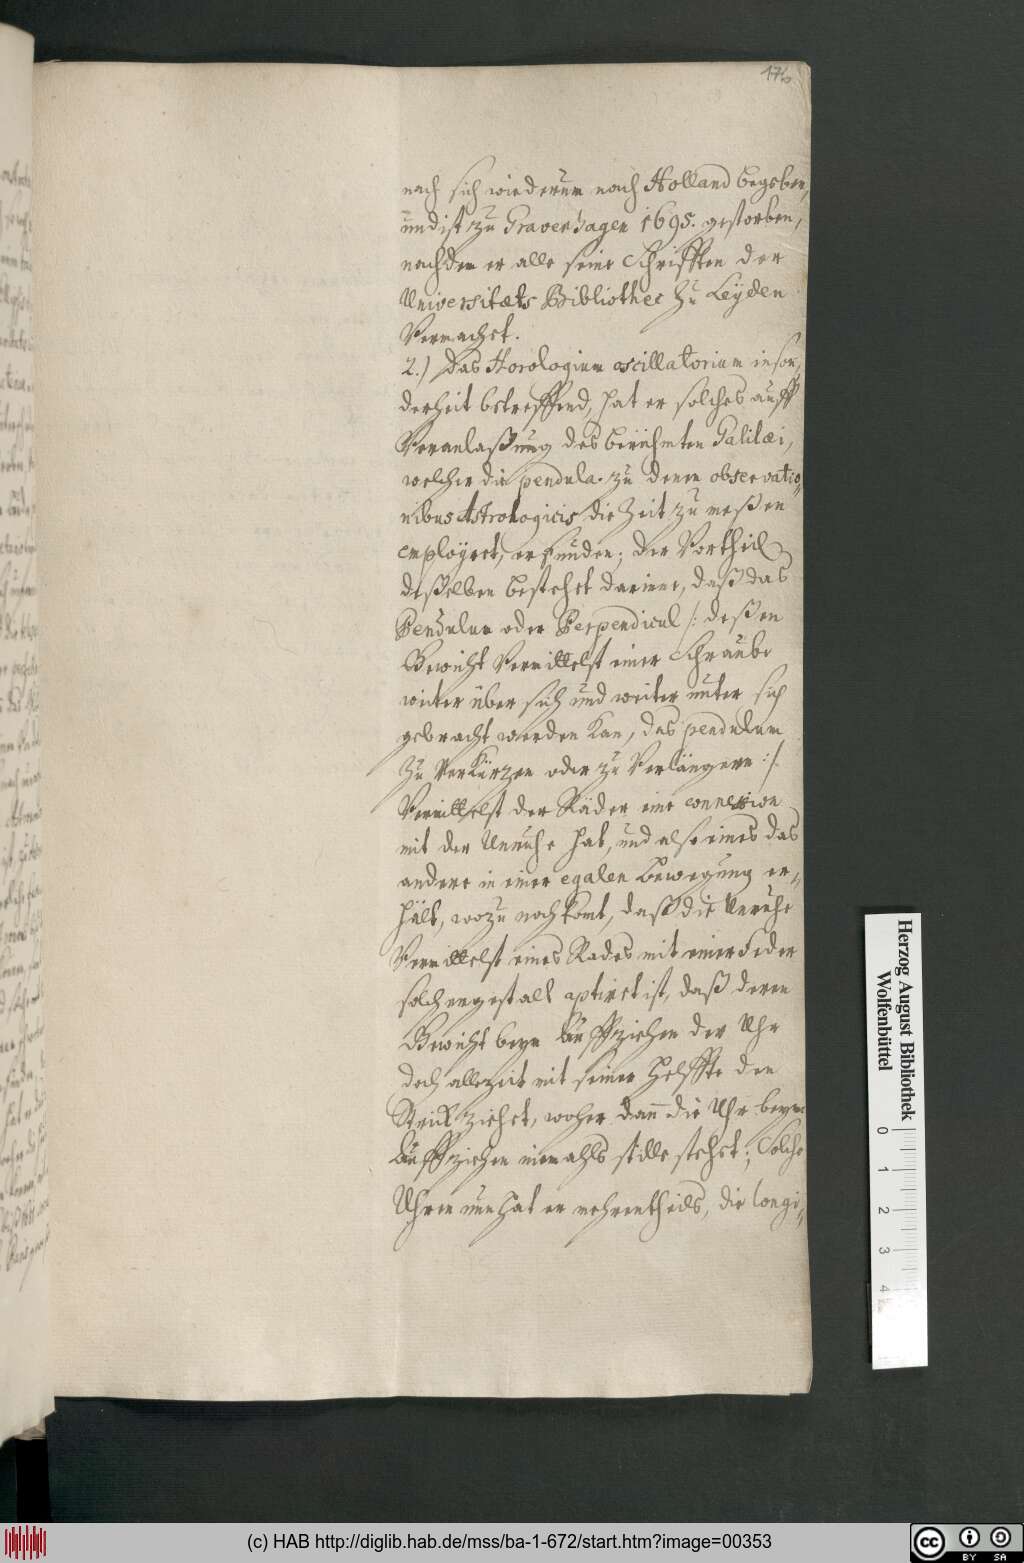 176
nach sich wiederum nach Holland begeben,
und ist zu Gravenhagen 1695. gestorben,
nachdem er alle seine Schrifften der
Universitæts Bibliothec zu Leÿden
Vermacht.
2.) Das Horologium oscillatorium inson,
derheit betreffend, hat er solches auff
Veranlaßung des berühmten Galilæi,
welcher die pendula zu denen observatio,
nibus Astrologicis die Zeit zu meßen
employret, erfunden; der Vortheil
deßelben bestehet darinne, daß das
Pendulum oder Perpendicul /: deßen
Gewicht Vermittelst einer Schraube
weiter über sich und weiter unter sich
gebracht werden kan, das pendulum
zu verkürzen oder zu Verlängern :/
Vermittelst der Räder eine connexion
mit der Unruhe hat, und also eines das
andere in einer egalen bewegung er,
hält, wozu noch komt, daß die Unruhe
Vermittelst eines Rades mit einer Feder
solchergestalt aptiret ist, daß deren
Gewicht beym Auffziehen der Uhr
doch allezeit mit seiner Helffte den
Strick ziehet, woher dann die Uhr beym
Auffziehen niemahls stille stehet; Solche
Uhren nun hat er mehrentheils, die longi,
Herzog August Bibliothek
Wolfenbüttel
0
1
2
3
4
(c) HAB http://diglib.hab.de/mss/ba-1-672/start.htm?image=00353
cc BY SA